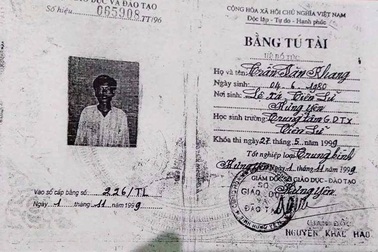 GIÁO DỤC VÀ ĐÀO TẠO
Số hiệu 065908 TT/96
Vào sổ cấp bằng số: 226/TL
Ngày 1 tháng 11 năm 1999
CỘNG HÒA XÃ HỘI CHỦ NGHĨA VIỆT NAM
Độc lập - Tự do - Hạnh phúc
BẰNG TÚ TÀI
HỆ BỔ TÚC
Họ và tên: Trần Văn Khang
Ngày sinh: 04. 6. 1980
Nơi sinh: Lê Xá, Tiên Lữ
Hưng Yên
Học sinh trường: Trung tâm G.D.T.X
Tiên Lữ
Khóa thi ngày 27 tháng 5 năm 1999
Tốt nghiệp loại: Trung bình
Hưng Yên Ngày 1 tháng 11 năm 1999
GIÁM ĐỐC SỞ GIÁO DỤC - ĐÀO TẠO
Hưng Yên
SỞ
GIÁO DỤC
VÀ
ĐÀO TẠO
NGUYỄN KHẮC HÀO